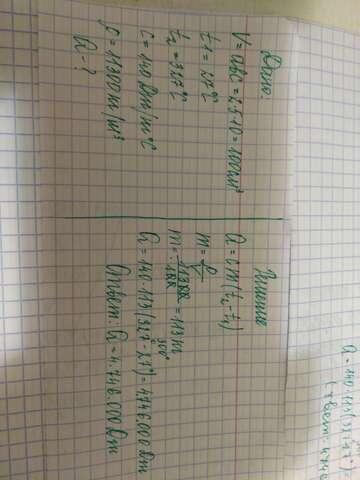 Дано:
V = abc = 2·5·10 = 100 см³
t₁ = 27°C
t₂ = 327°C
C = 140 Дж/кг°C
ρ = 11300 кг/м³
Q - ?
Решение
Q = cm(t₂ - t₁)
m = ρ/
m = 11300/100 = 113 кг
300°
Q = 140·113(327 - 27°) = 4746000 Дж
Ответ: Q = 4.746.000 Дж